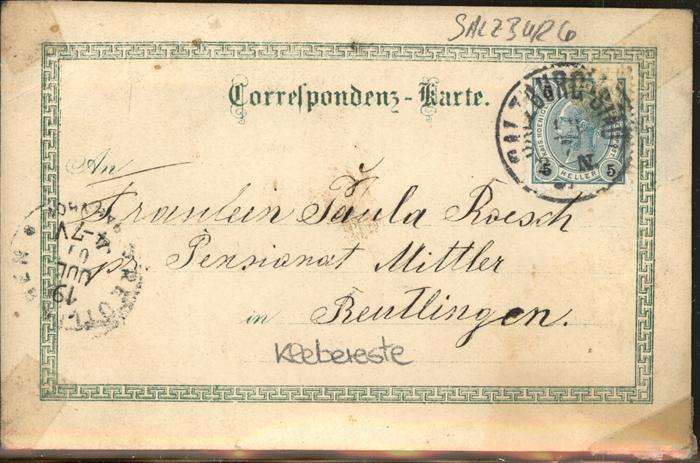 SALZBURG
Correspondenz-Karte.
An
Fräulein Paula Roesch
pr. Pensionat Mittler
in Reutlingen.
Klebereste
SALZBURG
5 HELLER 5
19
JUL
4-7V